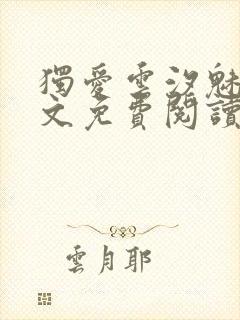 獨愛雲汐魅
文免費閱讀
雲月耶